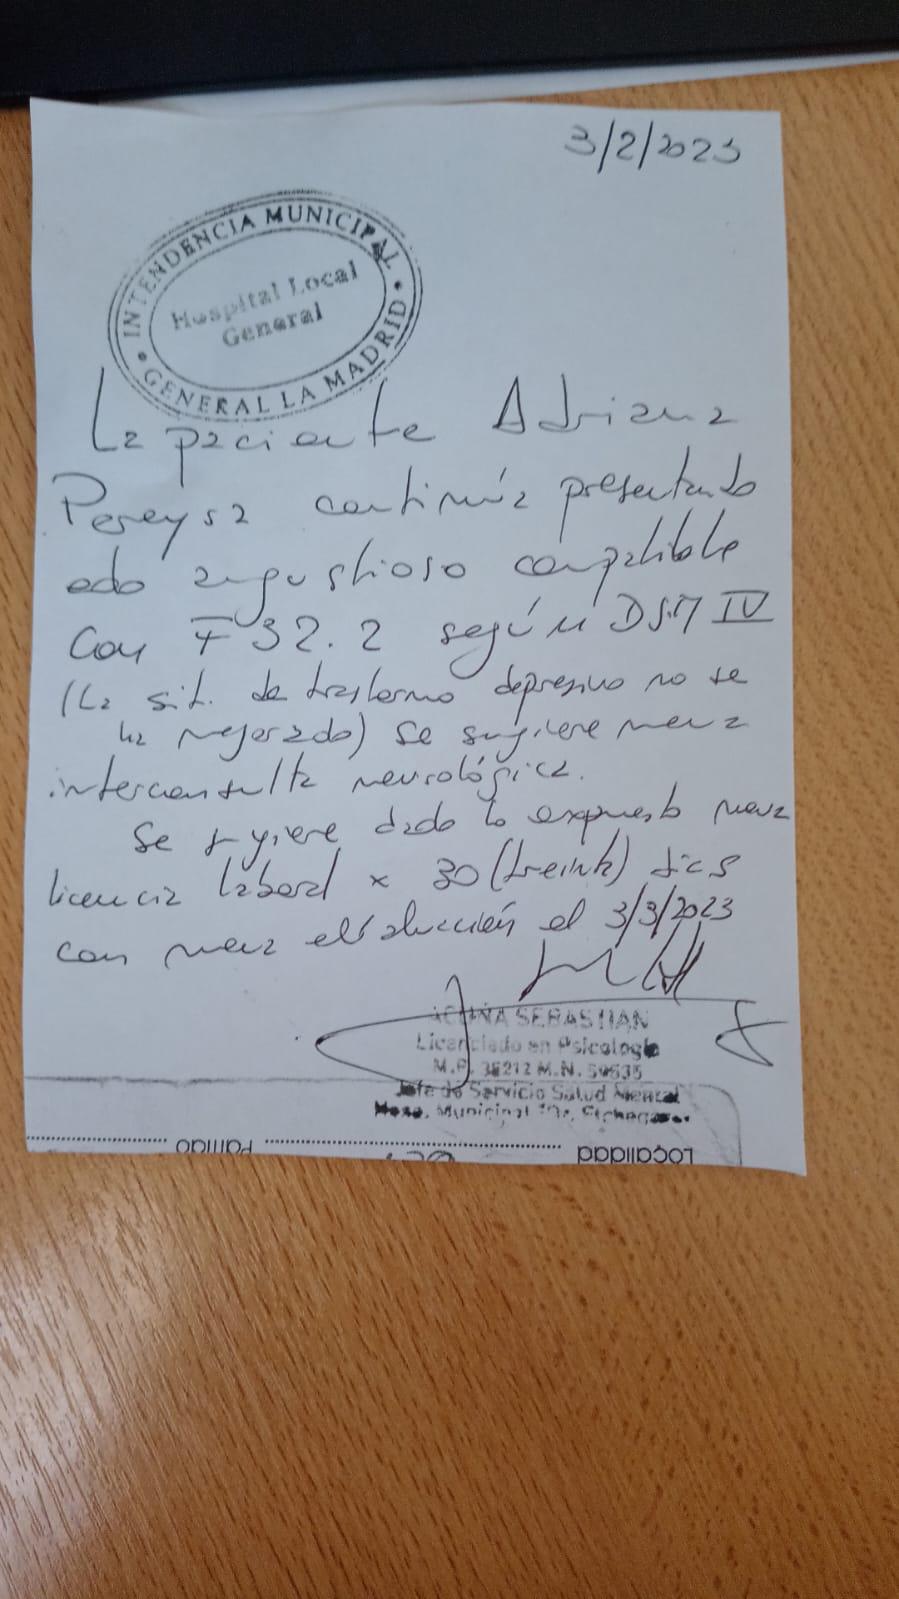 3/2/2023
INTENDENCIA MUNICIPAL
Hospital Local
General
GENERAL LA MADRID
La paciente Adriana
Pereyra continúa presentando
edo angustioso compatible
con F 32.2 según DSM IV
(La sit. de trastorno depresivo no se
ha mejorado) Se sugiere nueva
interconsulta neurológica.
Se sugiere dado lo expuesto nueva
licencia laboral x 30 (treinta) días
con nueva evaluación el 3/3/2023
ACUÑA SEBASTIAN
Licenciado en Psicología
M.P. 35212 M.N. 59535
Jefe de Servicio Salud Mental
Hosp. Municipal
Localidad
Partido